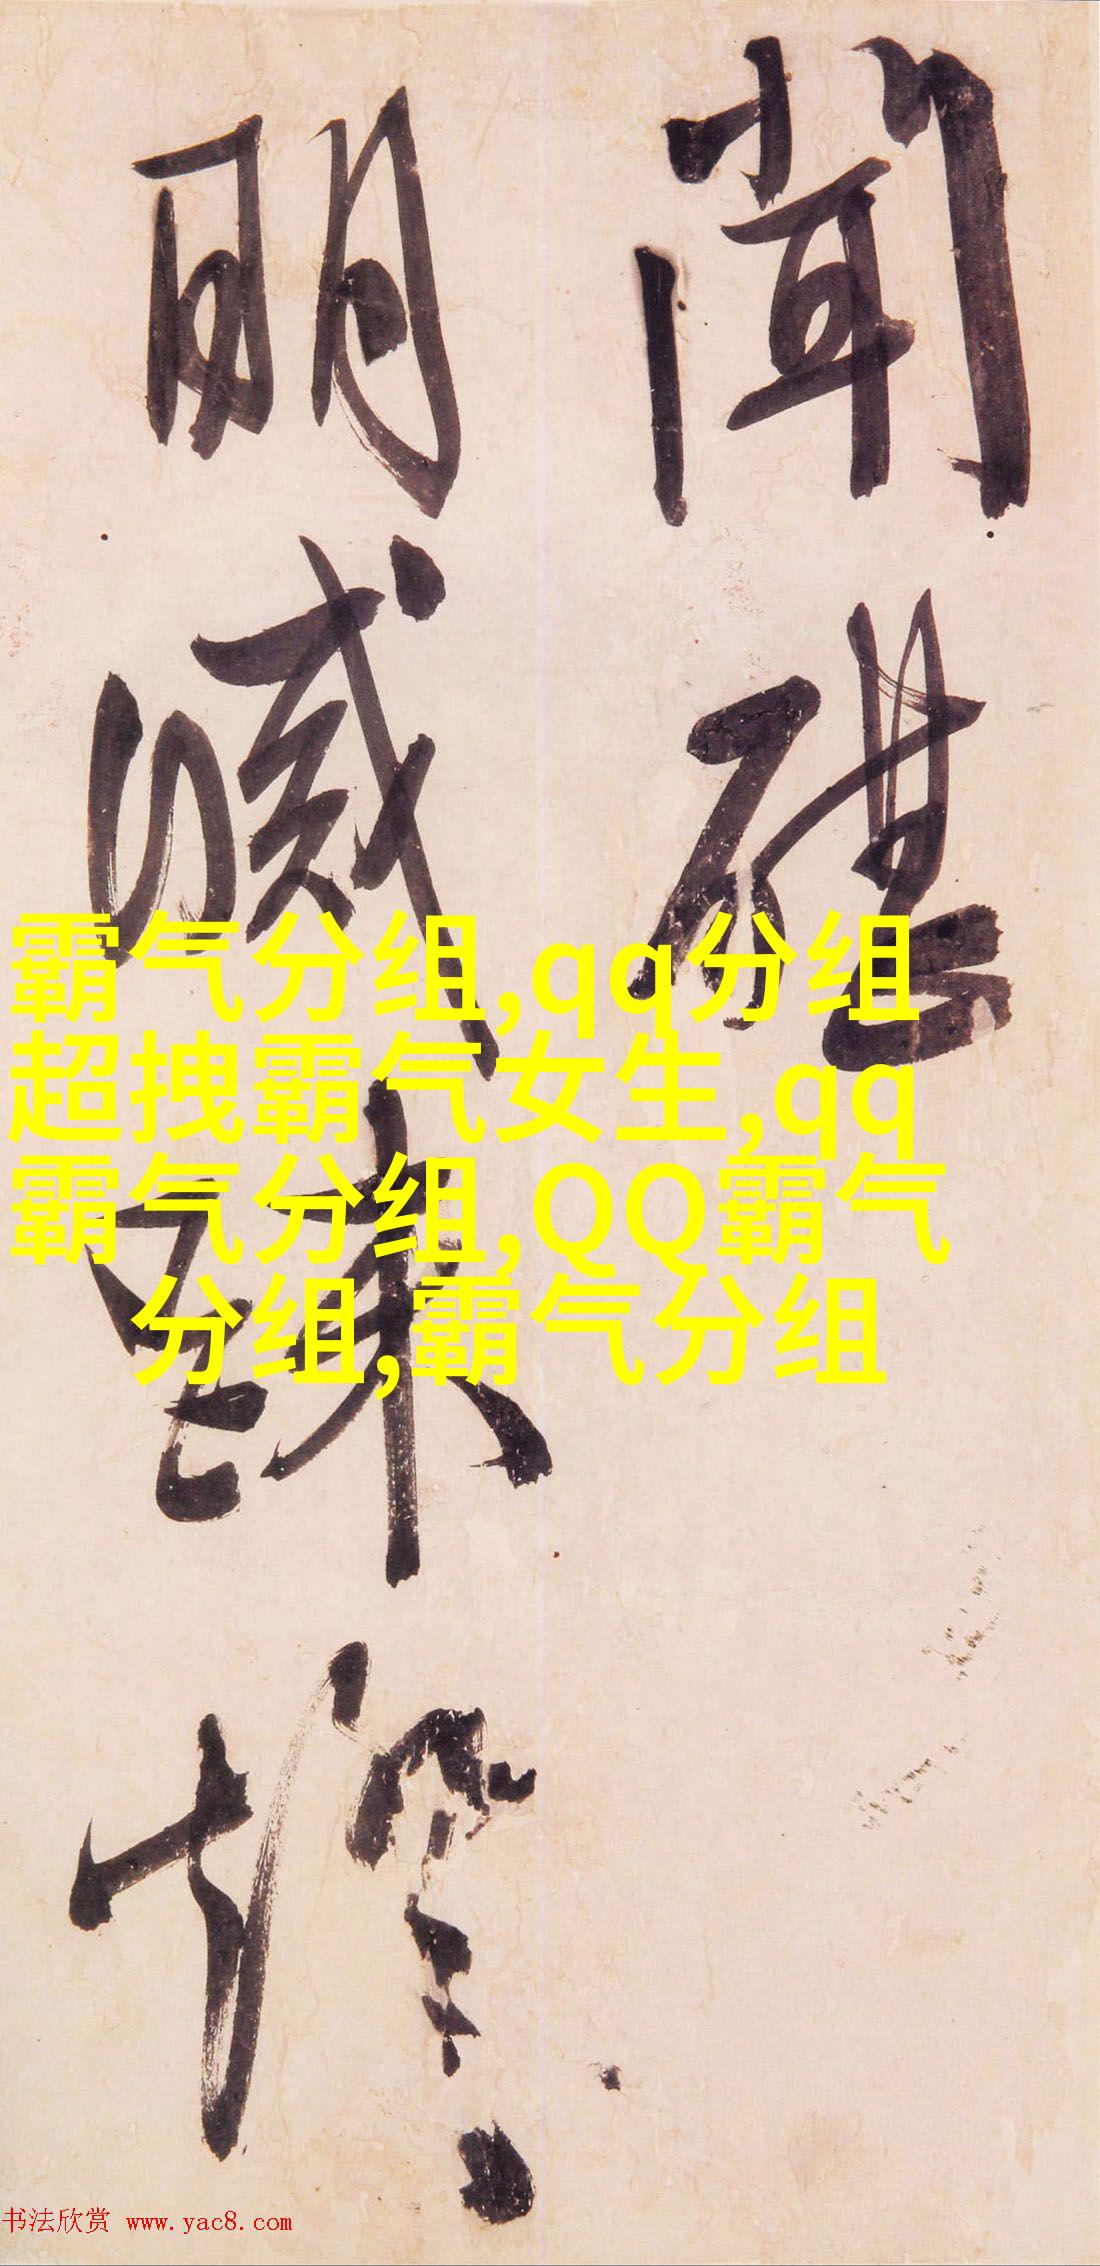 聞碪
明滅踈燈
霸气分组,qq分组
超拽霸气女生,qq
霸气分组,QQ霸气
分组,霸气分组
书法欣赏 www.yac8.com